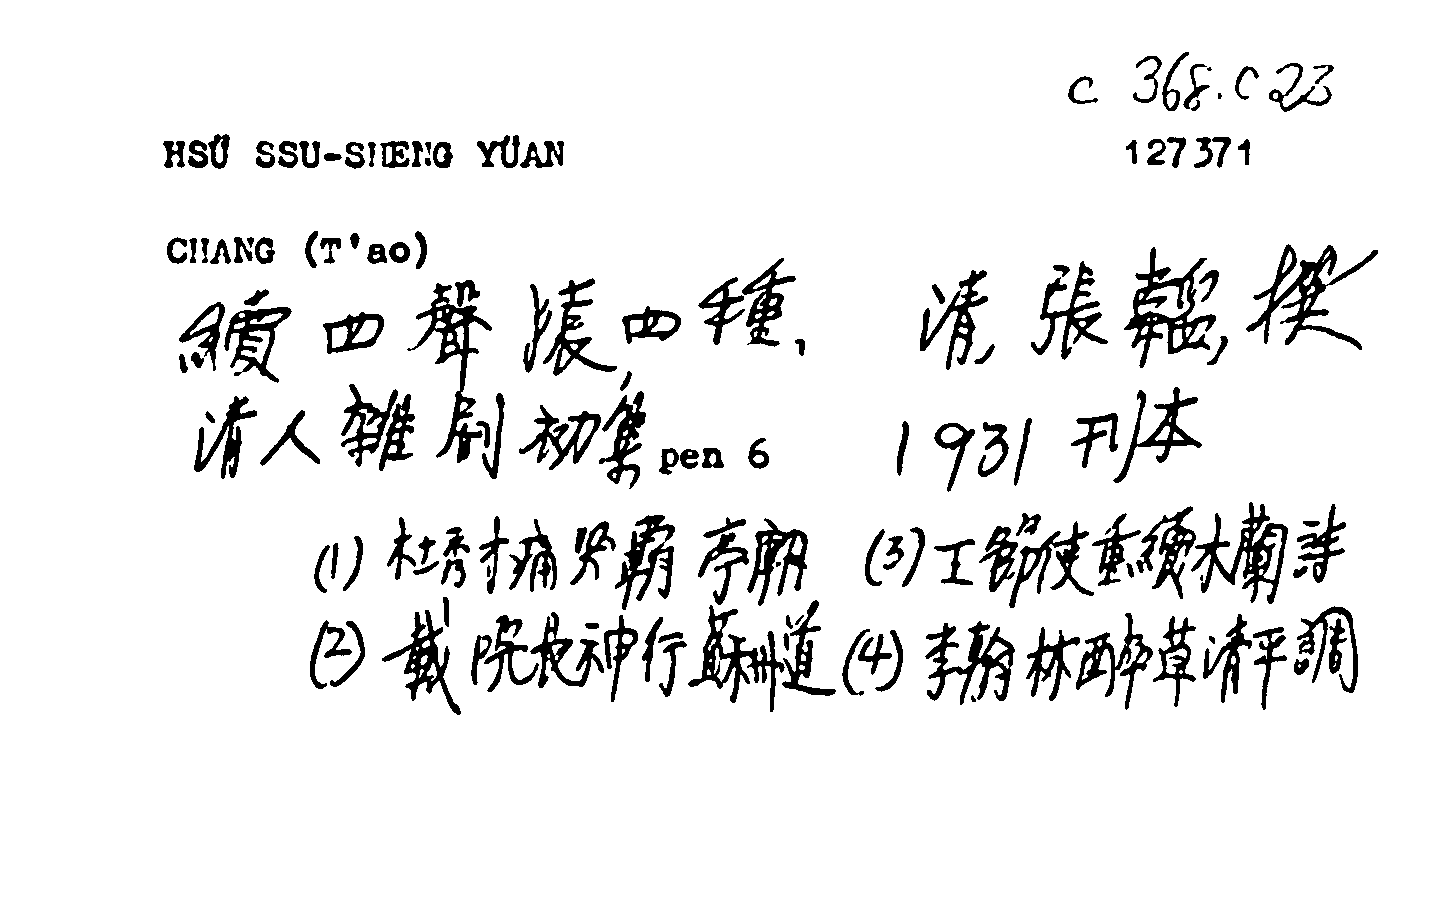 c 368.c 23
HSÜ SSU-SHENG YÜAN 127371
CHANG (T'ao)
續四聲猿四種, 清, 張韜, 撰
清人雜劇初集, pen 6 1931 刊本
(1) 杜秀才痛哭霸亭廟 (3) 王節使重續木蘭詩
(2) 戴院長神行蘇州道 (4) 李翰林醉草清平調